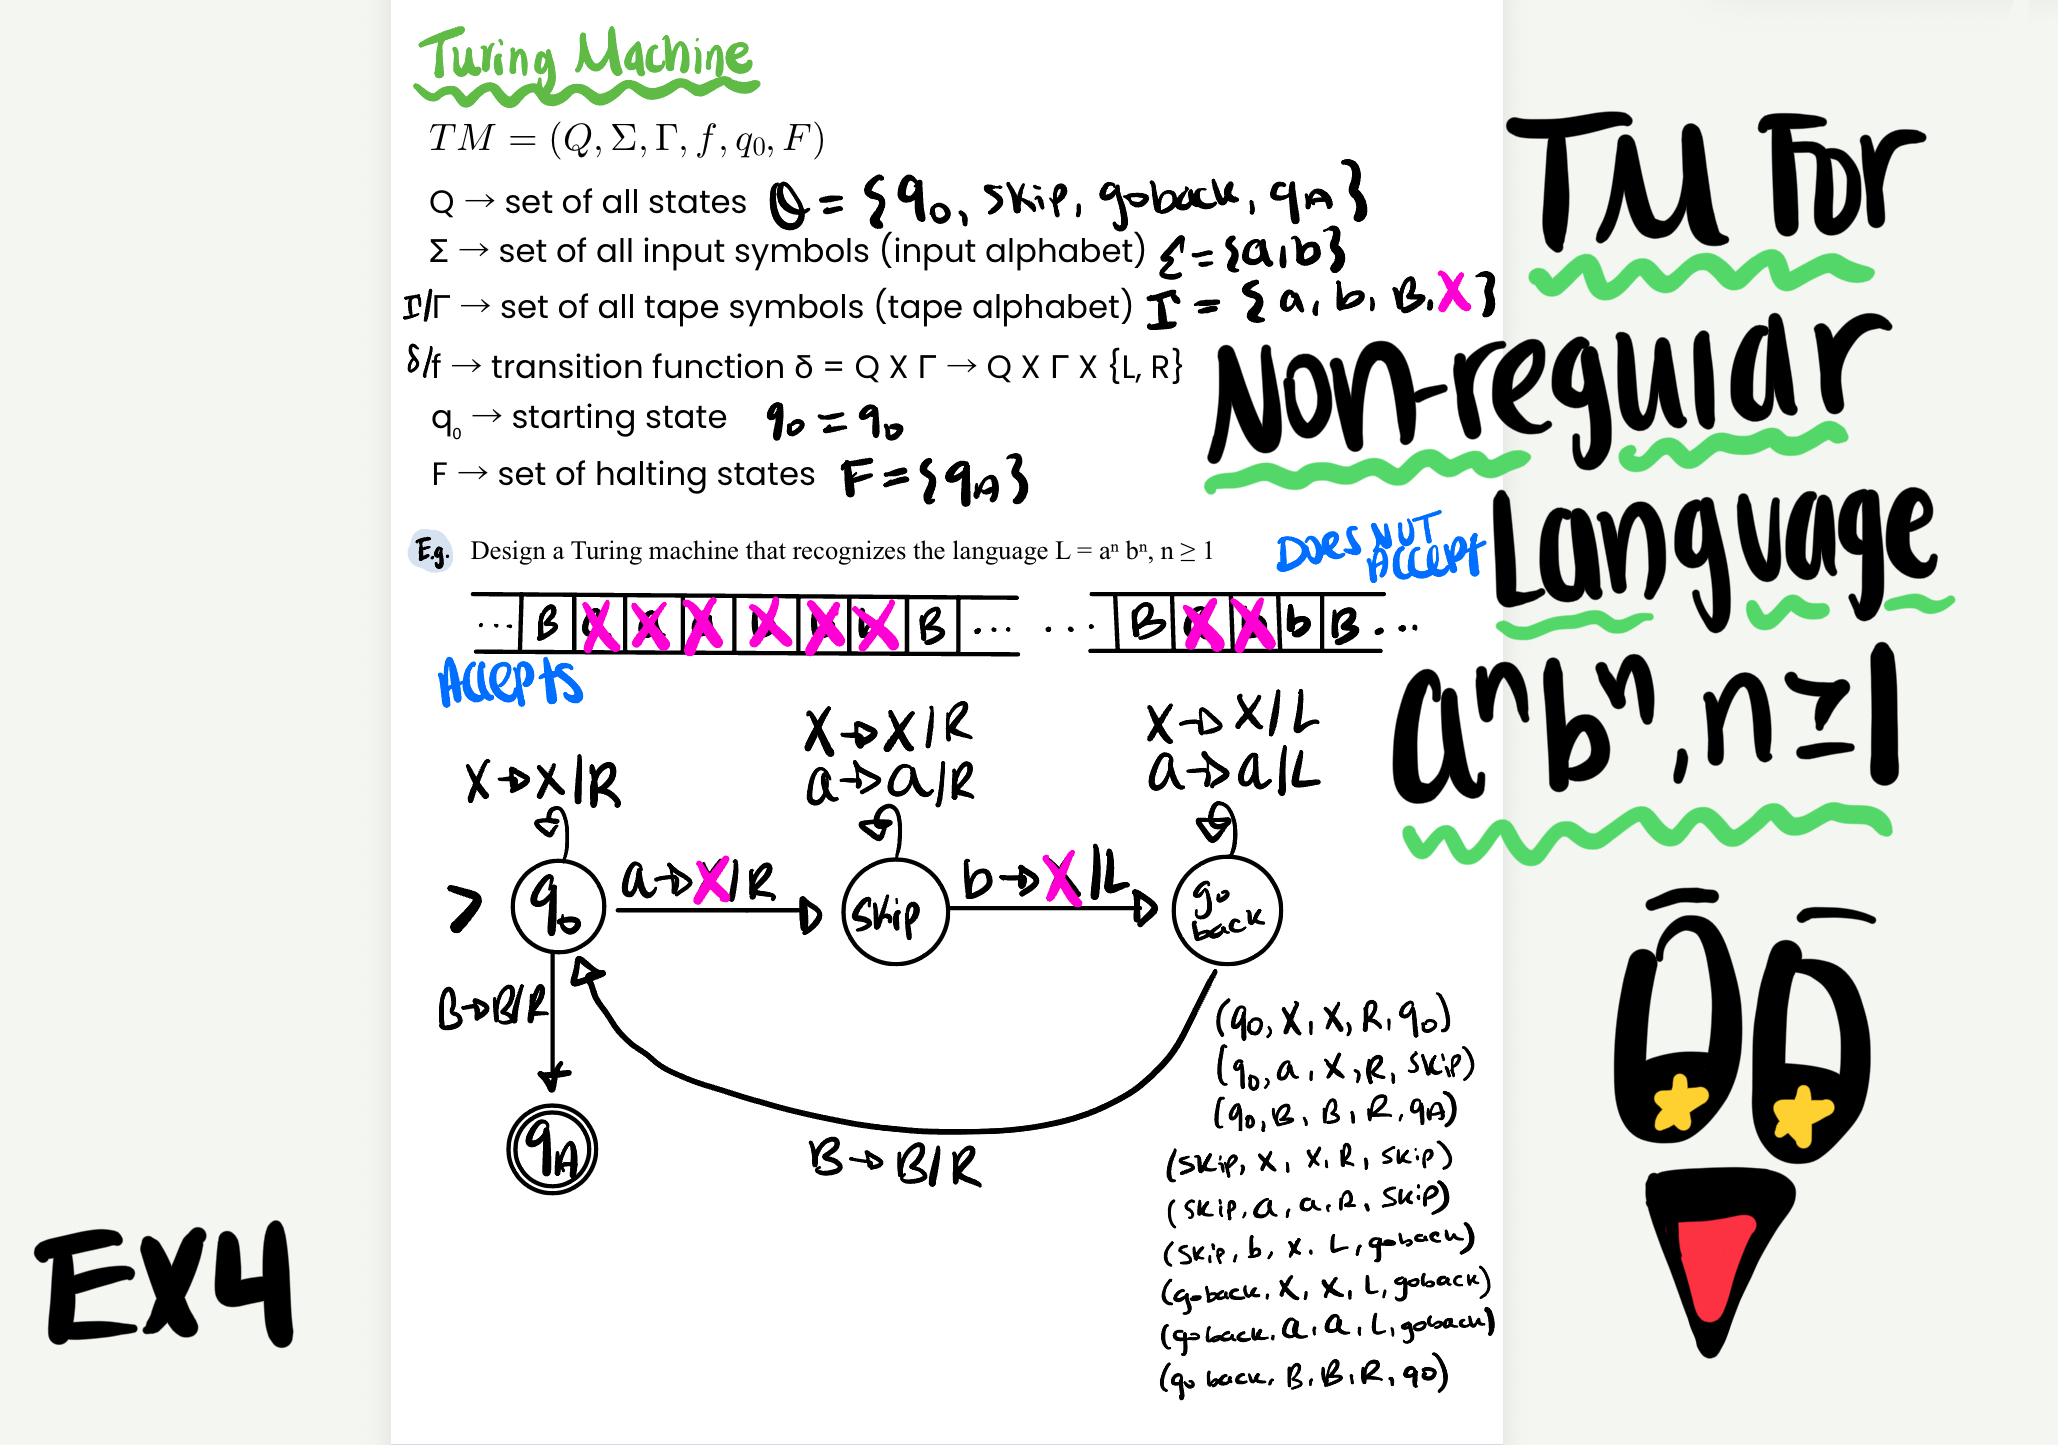 Turing Machine
TM = (Q, Σ, Γ, f, q₀, F)
Q → set of all states Q = {q₀, skip, goback, qA}
Σ → set of all input symbols (input alphabet) Σ = {a,b}
Γ/Γ → set of all tape symbols (tape alphabet) Γ = {a, b, B, X}
δ/f → transition function δ = Q X Γ → Q X Γ X {L, R}
q₀ → starting state q₀ = q₀
F → set of halting states F = {qA}
E.g. Design a Turing machine that recognizes the language L = aⁿ bⁿ, n ≥ 1
DOES NOT ACCEPT
... B X X X X X X B ...
... B X X b B ...
Accepts
X → X/R
X → X/R
a → a/R
X → X/L
a → a/L
> q₀
a → X/R
skip
b → X/L
go back
B → B/R
qA
B → B/R
(q₀, X, X, R, q₀)
(q₀, a, X, R, skip)
(q₀, B, B, R, qA)
(skip, X, X, R, skip)
(skip, a, a, R, skip)
(skip, b, X, L, goback)
(goback, X, X, L, goback)
(goback, a, a, L, goback)
(go back, B, B, R, q₀)
TM For
Non-regular
Language
aⁿbⁿ, n ≥ 1
EX4